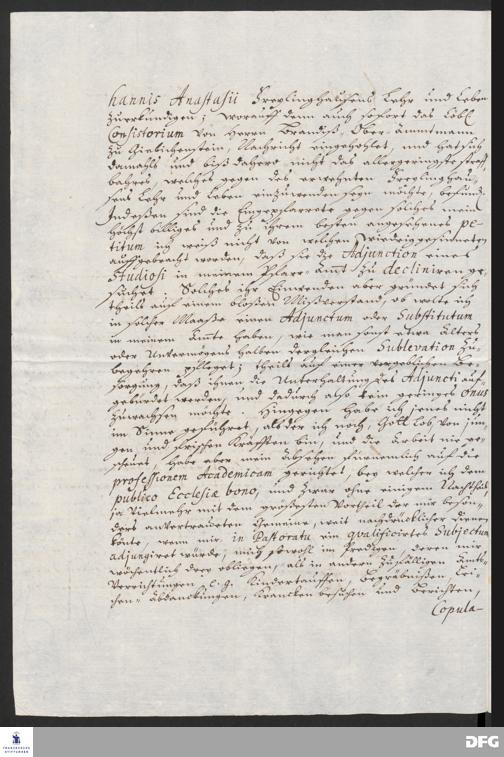 hannis Anastasii Freylinghausens Lehr und Leben
zuerkundigen; worauff denn auch sofort das Löbl.
Consistorium von Herrn Brandiß, Ober-Ammtmann
zu Giebichenstein, Nachricht eingeholet, und hat sich
damahls und biß dahero nicht das allergeringste straff
bahres, welches gegen des erwehnten Freylinghau
sens Lehr und Leben einzuwenden seyn möchte, befund.
Indeßen sind die Eingepfarrete gegen solches mein
höchst billiges und zu ihrem besten angesehenes pe-
titum ich weiß nicht von welchen wiedriggesinneten
auffgebracht worden, daß sie die Adjunction eines
Studiosi in meinem Pfarr-Amt zu decliniren ge
suchet. Solches ihr Einwenden aber gründet sich
theils auf einem bloßen Mißverstand, ob wolte ich
in solcher Maaße einen Adjunctum oder Substitutum
in meinem Amte haben, wie man sonst etwa Alters
oder Unvermögens halben dergleichen Sublevation zu
begehren pfleget; theils auf einer vergeblichen Be
sorgung, daß ihnen die Unterhaltung des Adjuncti auf-
gebürdet werden, und dadurch also kein geringes Onus
zuwachsen möchte. Hingegen habe ich jenes nicht
im Sinne geführet, als der ich noch, Gott Lob, von jun
gen und frischen Kräfften bin, und die Arbeit nie ge
scheuet, habe aber mein Absehen fürnemlich auf die
professionem Academicam gerichtet, bey welcher ich dem
publico Ecclesiæ bono, und zwar ohne einigem Nachtheil,
ja vielmehr mit dem grossesten Vortheil der mir beson-
ders anvertraueten Gemeine, weit nachdrücklicher dienen
könte, wenn mir in Pastoratu ein qvalificirtes Subjectum
adjungiret würde; mich sowohl im Predigen, deren mir
wöchentlich drey obliegen, als in andern zufälligen Amts-
Verrichtungen, e.g. Kindertauffen, Begräbnißen, Lei-
chen-Abdanckungen, Krancken besuchen und Berichten,
Copula-
FRANCKESCHE
STIFTUNGEN
DFG